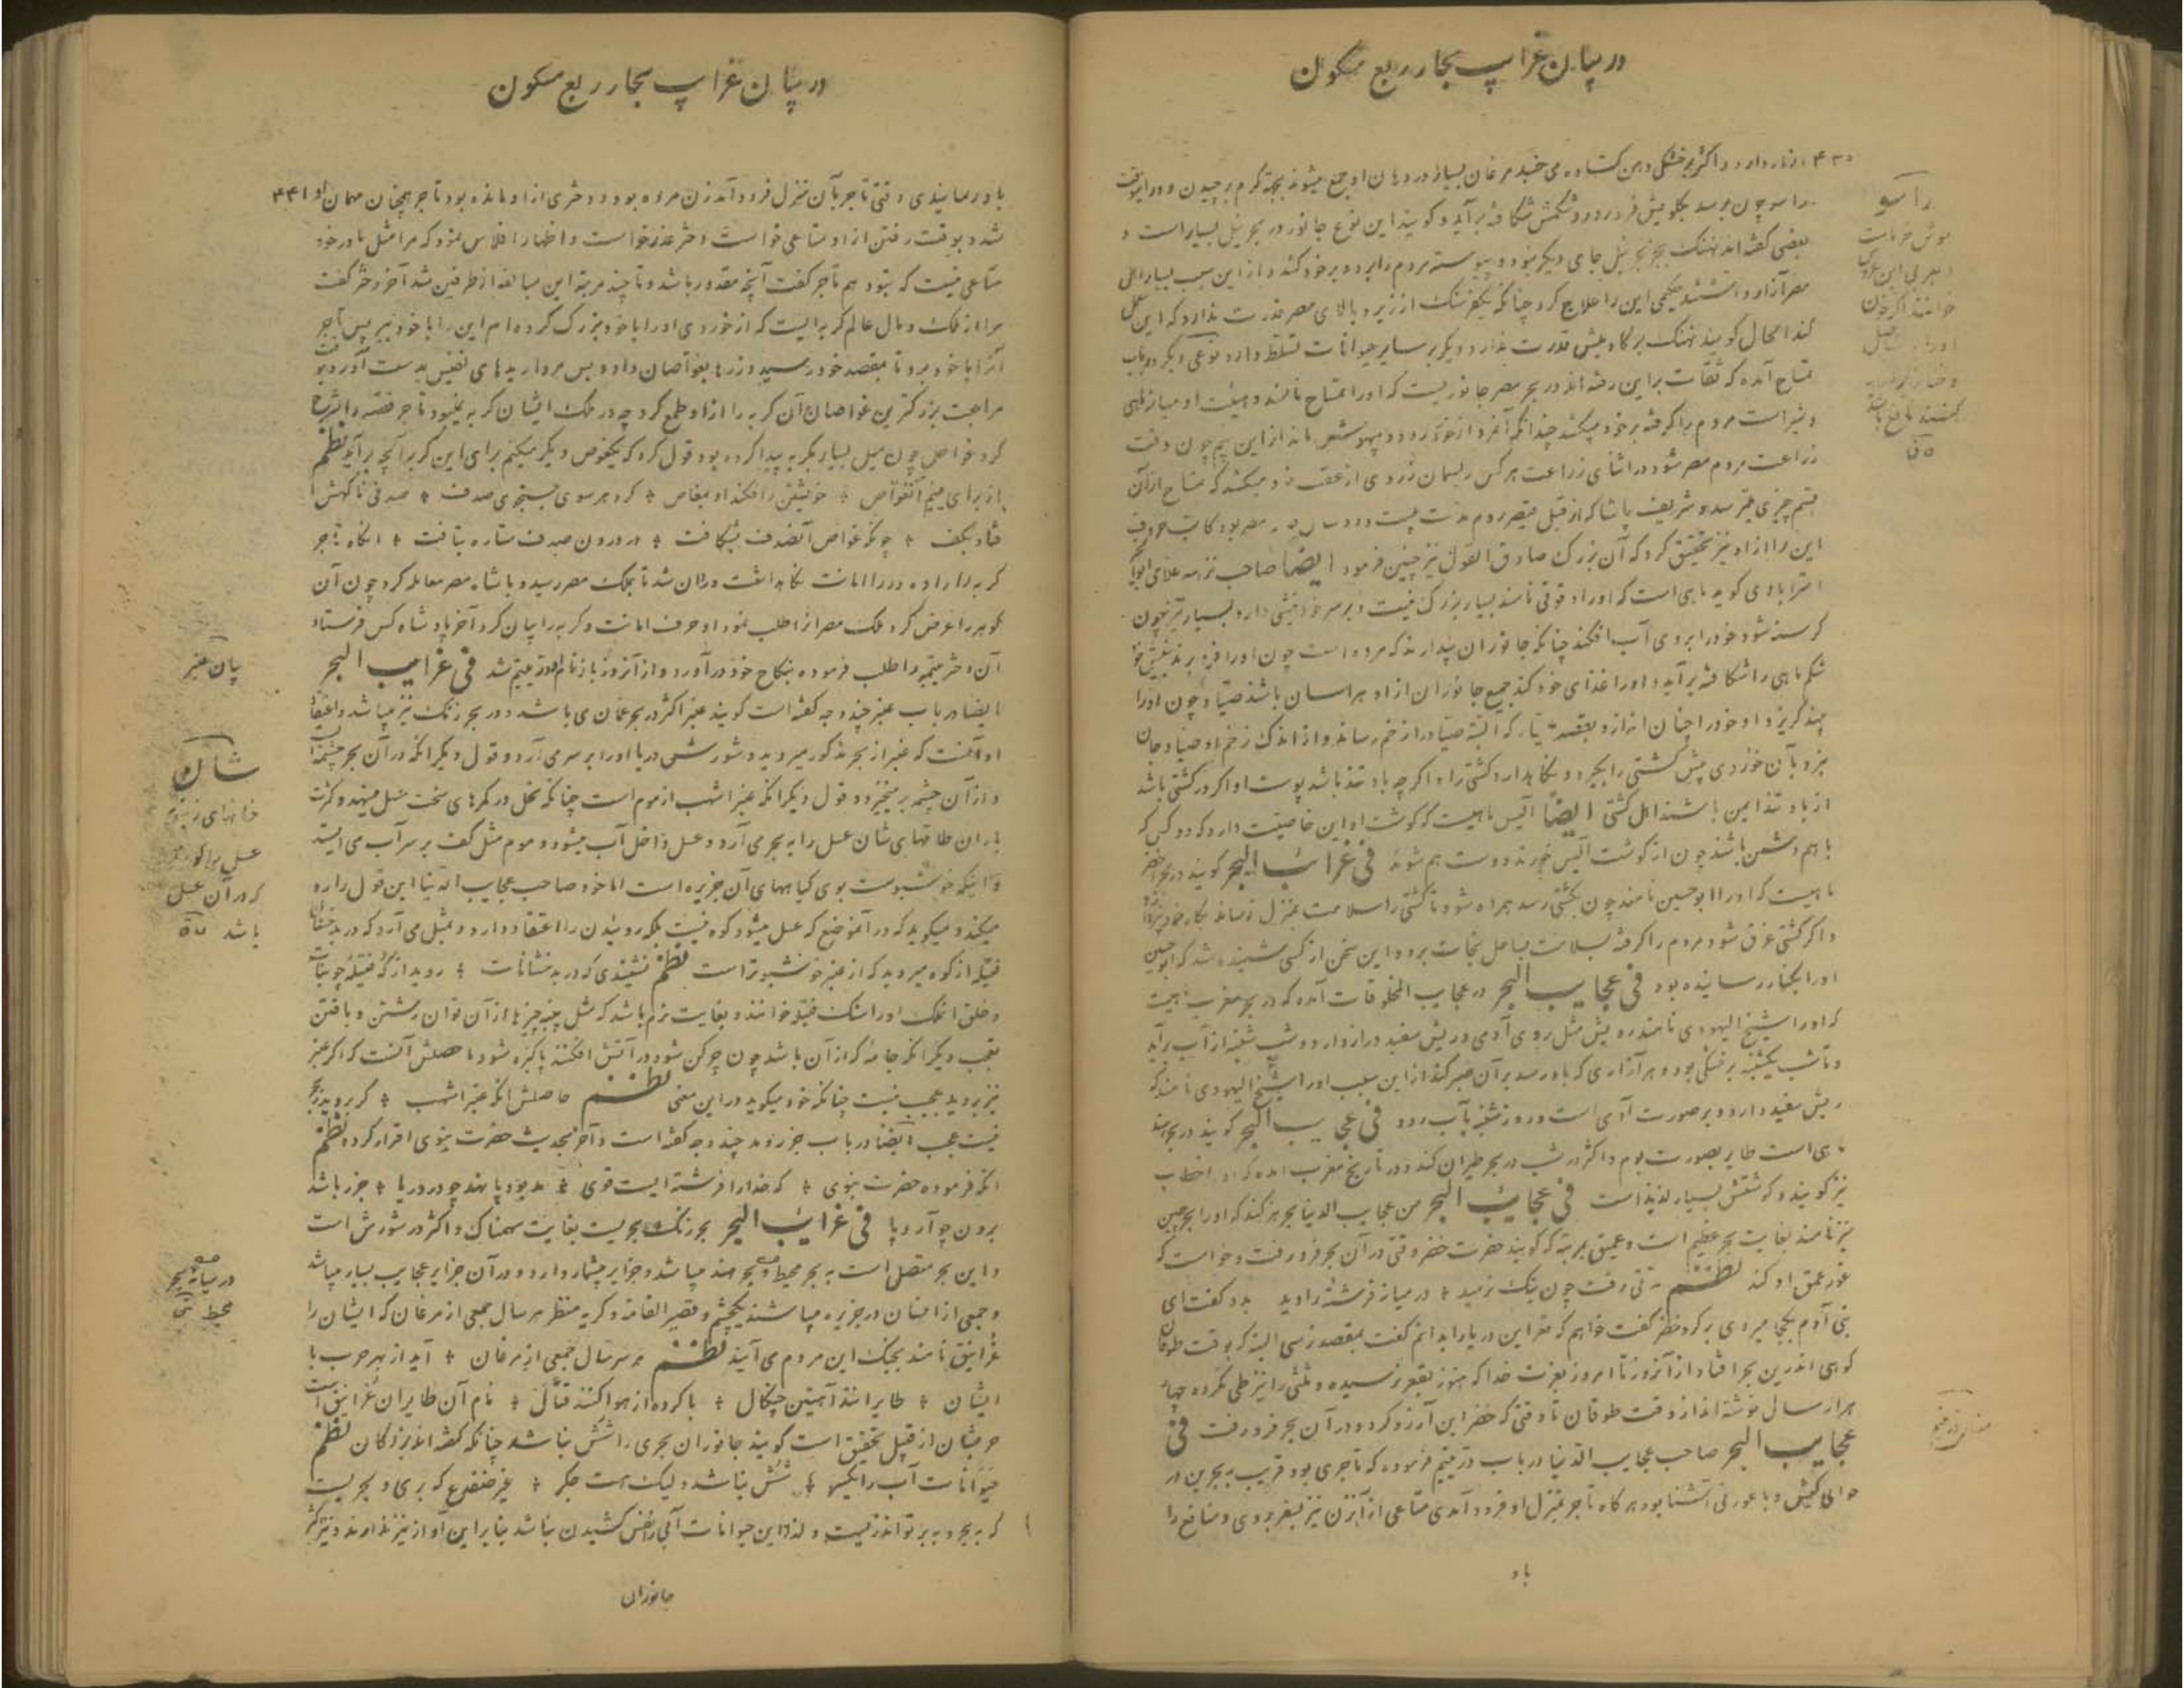 در بیان غرایب بحار ربع مسکون
۴۳۰
دارد و اکثر بر خشکی دهن کشاده می خسبد مرغان بسیار در دهان او جمع میشوند بجهة کرم برچیدن و در آنوقت
راسو چون برسد بکلویش فرو رود و شکمش شکافته برآید و کویند این نوع جانور در بحر نیل بسیار است و
بعضی کفته اند نهنک بجز بحر نیل جای دیکر نبود و پیوسته مردم را برد و بر خود کشد و از این سبب بسیار اهل
مصر آزار داشتند حکیمی این را علاج کرد چنانکه یکفرسنک از زیر و بالای مصر قدرت ندارد که این عمل
کند الحال کویند نهنک بر کاومیش قدرت ندارد و دیکر بر سایر حیوانات تسلط دارد نوعی دیکر در باب
تمساح آمده که ثقات براین رفته اند در بحر مصر جانوریست که او را تمساح نامند و هیئت او میانه ماهی
و شیر است مردم را کرفته بر خود میکشد چندانکه آنمرد از خود رود و بیهوش ماند از این بیم چون وقت
زراعت مردم مصر شود در اثنای زراعت هر کس ریسمان زردی از عقب خود میکشد که تمساح از آن
قسم چیزی میترسد و شریف پاشا که از قبل قیصر روم مدت بیست و دو سال در مصر بود کاتب حروف
این را از او نیز تحقیق کرد که آن بزرک صادق القول نیز چنین فرمود ایضا صاحب نزهه علامی
استرابادی کوید ماهی است که او را قوقی نامند بسیار بزرک نیست و بر سر خود نیشی دارد بسیار تیز چون
کرسنه شود خود را بر وی آب افکند چنانکه جانوران پندارند که مرده است چون او را فرو برند بنیش خود
شکم ماهی را شکافته برآید و او را غذای خود کند جمیع جانوران از او هراسان باشند صیاد چون او را
بیند کریزد و او خود را چنان اندازد بقصد که البته صیاد را زخم رساند و از اندک زخم او صیاد جان
بزد بآن خوردی پیش کشتی را بکیرد و نکاهدارد کشتی را و اکر چه باد تند باشد پوست او اکر در کشتی باشد
از باد تند ایمن باشند اهل کشتی ایضا الیس ماهیست که کوشت او این خاصیت دارد که دو کس که
با هم دشمن باشند چون از کوشت الیس خورند دوست هم شوند فی غرایب البحر کویند در بحر اخضر
ماهیست که او را ابوحسین نامند چون بکشتی رسد همراه شود تا کشتی را سلامت بمنزل نرساند بکار خود نپردازد
و اکر کشتی غرق شود مردم را کرفته بسلامت بساحل نجات برد و این سخن از کسی شنیده شد که ابوحسین
او را بکنار رسانیده بود فی عجایب البحر در عجایب المخلوقات آمده که در بحر مغرب ماهیست
که او را شیخ الیهودی نامند رویش مثل روی آدمی و ریش سفید دراز دارد و شب شنبه از آب برآید
و تا شب یکشنبه بر خشکی بود و هر آزاری که باو رسد بر آن صبر کند از این سبب او را شیخ الیهودی نامند که
ریش سفید دارد و بر صورت آدمی است و روز شنبه بآب رود فی عجایب البحر کویند در بحر هند
ماهی است طایر بصورت بوم و اکثر در شب در بحر طیران کند و در تاریخ مغرب آمده که او را خطاب
نیز کویند و کوشتش بسیار لذیذ است فی عجایب البحر من عجایب الدنیا بحر هرکند که او را بحر چین
نیز نامند بغایت بحر عظیم است و عمیق بمرتبه که کویند حضرت خضر وقتی در آن بحر فرو رفت و خواست که
غور عمق او کند نظم مدتی رفت چون بتک نرسید ÷ در میانه فرشته را دید بدو کفت ای
بنی آدم بکجا میروی بر کرد خضر کفت خواهم که قعر این دریا را بدانم کفت بمقصد نرسی البته که بوقت طوفان
کوهی اندرین بحر افتاد از آنروز تا امروز بعزت خدا که هنوز بقعر نرسیده و ثلثی را نیز طی نکرده چهار
هزار سال نوشته اند از وقت طوفان تا وقتی که خضر این آرزو کرد و در آن بحر فرو رفت فی
عجایب البحر صاحب عجایب الدنیا در باب در یتیم فرموده که تاجری بود قریب به بحرین در
حوالی کیش و با عورتی آشنا بود هر کاه تاجر بمنزل او فرود آمدی متاعی از آنزن نیز بسفر بردی و منافع را
باو
راسو
موش خرماست
خوانند اکر خون
در بیان غرایب بحار ربع مسکون
باو رسانیدی وقتی تاجر بآن منزل فرود آمد زن مرده بود و دختری از او مانده بود تاجر همچنان مهمان او ۴۳۱
شد و بوقت رفتن از او متاعی خواست دختر عذر خواست و اظهار افلاس نمود که مرا مثل مادر خود
متاعی نیست که بتو دهم تاجر کفت آنچه مقدور باشد و تا چند مرتبه این مبالغه از طرفین شد آخر دختر کفت
مرا از ملک و مال عالم کربه ایست که از خوردی او را با خود بزرک کرده ام این را با خود ببر پس تاجر
آنرا با خود برد تا بمقصد خود رسید و زرها بغواصان داد و بس مرواریدهای نفیس بدست آورد وقت
مراجعت بزرکترین غواصان آن کربه را از او طمع کرد چه در ملک ایشان کربه نمیبود تاجر قصه را شرح
کرد غواص چون میل بسیار بکربه پیدا کرده بود قول کرد که یکغوص دیکر میکنم برای این کربه آنچه برآید نظم
از برای یتیم آنغواص ÷ خویشتن را فکند او بمغاص ÷ کرد هر سوی جستجوی صدف ÷ صدفی ناکهش
فتاد بکف ÷ چونکه غواص آنصدف بشکافت ÷ در درون صدف ستاره بتافت ÷ آنکاه تاجر
کربه را داده در را امانت نکاهداشت و روان شد تا بملک مصر رسید و با شاه مصر معامله کرد چون آن
کوهر را عرض کرد ملک مصر از او طلب نمود او حرف امانت و کربه را بیان کرد آخر پادشاه کس فرستاد
آن دختر یتیمه را طلب فرموده بنکاح خود درآورد و از آنروز باز نام او در یتیم شد فی غرایب البحر
ایضا در باب عنبر چند وجه کفته است کویند عنبر اکثر در بحر عمان می باشد و در بحر زنک نیز میباشد و اعتقاد
او آنست که عنبر از بحر مذکور میروید و شورش دریا او را بر سر می آرد و قول دیکر آنکه در آن بحر چشمه است
و از آن چشمه بر میخیزد و قول دیکر آنکه عنبر اشهب از موم است چنانکه نحل در کمرهای سخت عسل مینهد و کثرت
باران طاقهای شان عسل را به بحر می آرد و عسل داخل آب میشود و موم مثل کف بر سر آب می ایستد
و اینکه خوشبوست بوی کیاههای آن جزیره است اما خود صاحب عجایب الدنیا این قول را رد
میکند و میکوید که در آنموضع که عسل میشود کوه نیست بلکه روئیدن را اعتقاد دارد و تمثیل می آرد که در بدخشان
فتیله از کوه میروید که از عنبر خوشبوتر است نظم نشنیدی که در بدخشانات ÷ روید از که فتیله چوبات
و خلق آنملک او را سنک فتیله خوانند و بغایت نرم باشد که مثل پنبه چیزها از آن توان رشتن و بافتن
عجب دیکر آنکه جامه که از آن باشد چون چرکن شود در آتش افکنند پاکیزه شود حاصلش آنست که اکر عنبر
نیز بروید عجیب نیست چنانکه خود میکوید در این معنی نظم حاصلش آنکه عنبر اشهب ÷ کر بروید ز بحر
نیست عجب ایضا در باب جزر و مد چند وجه کفته است و آخر بحدیث حضرت نبوی اقرار کرده نظم
آنکه فرموده حضرت نبوی ÷ که خدا را فرشته ایست قوی ÷ مد بود پا نهد چو در دریا ÷ جزر باشد
برون چو آرد پا فی غرایب البحر بحر زنک بحریست بغایت سهمناک و اکثر در شورش است
و این بحر متصل است به بحر محیط و بحر هند میباشد و جزایر بیشمار دارد و در آن جزایر عجایب بسیار میباشد
و جمعی از انسان در جزیره میباشند یکچشم و قصیر القامه و کریه منظر هر سال جمعی از مرغان که ایشان را
غرانیق نامند بجنک این مردم می آیند نظم هر سال جمعی از مرغان ÷ آید از بهر حرب با
ایشان ÷ طایرانند آهنین چنکال ÷ با کروه از هوا کنند قتال ÷ نام آن طایران غرانیق است
حربشان از قبیل تحقیق است کویند جانوران بحری را شش نباشد چنانکه کفته اند بزرکان نظم
حیوانات آب را یکسر ÷ شش نباشد ولیک هست جکر ÷ غیر ضفدع که بری و بحریست
که به بحر و به بر تواند زیست و لهذا این حیوانات آبی را نفس کشیدن نباشد بنابراین آواز نیز ندارند و نیز اکثر
جانوران
بیان عنبر
شان
خانهای زنبور
عسل را کویند
که در آن عسل
باشد
در میانه بحر
محیط